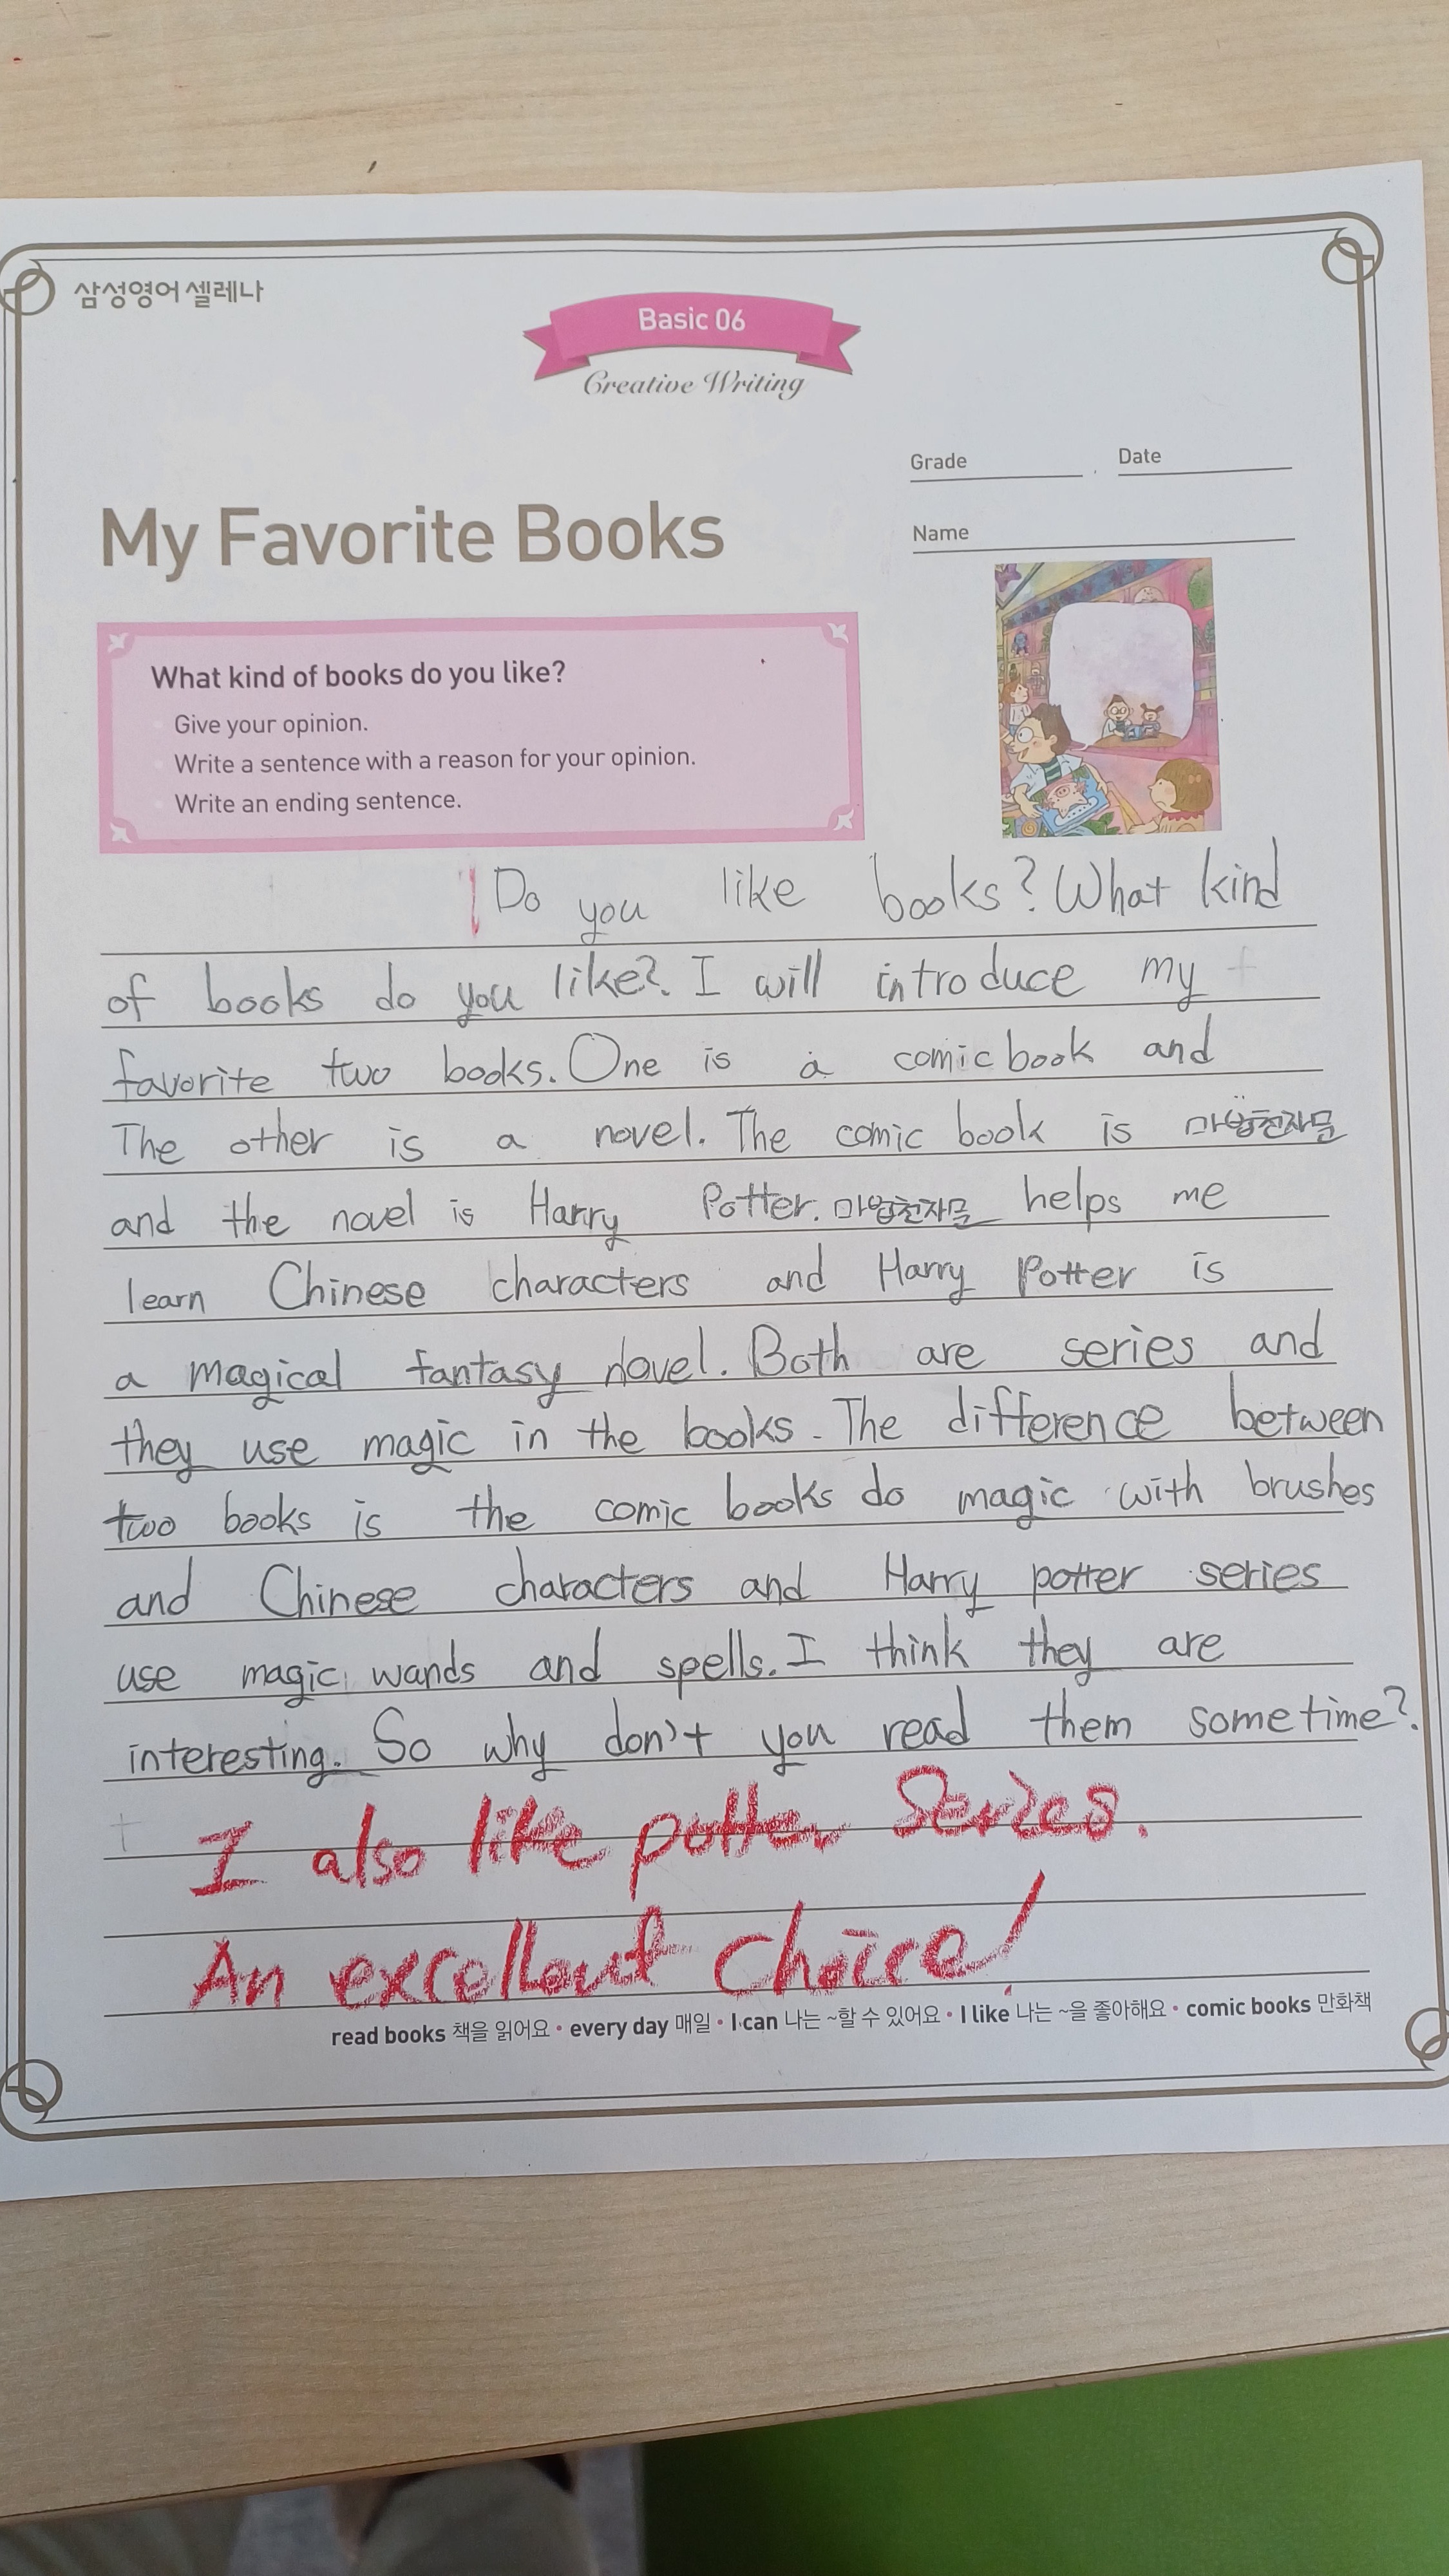 삼성영어 셀레나
Basic 06
Creative Writing
Grade
Date
My Favorite Books
Name
What kind of books do you like?
Give your opinion.
Write a sentence with a reason for your opinion.
Write an ending sentence.
Do you like books? What kind
of books do you like?. I will introduce my
favorite two books. One is a comic book and
The other is a novel. The comic book is 마법천자문
and the novel is Harry Potter. 마법천자문 helps me
learn Chinese characters and Harry Potter is
a magical fantasy novel. Both are series and
they use magic in the books. The difference between
two books is the comic books do magic with brushes
and Chinese characters and Harry potter series
use magic wands and spells. I think they are
interesting. So why don't you read them sometime?.
I also like potter Series.
An excellent choice!
read books 책을 읽어요 • every day 매일 • I can 나는 ~할 수 있어요 • I like 나는 ~을 좋아해요 • comic books 만화책